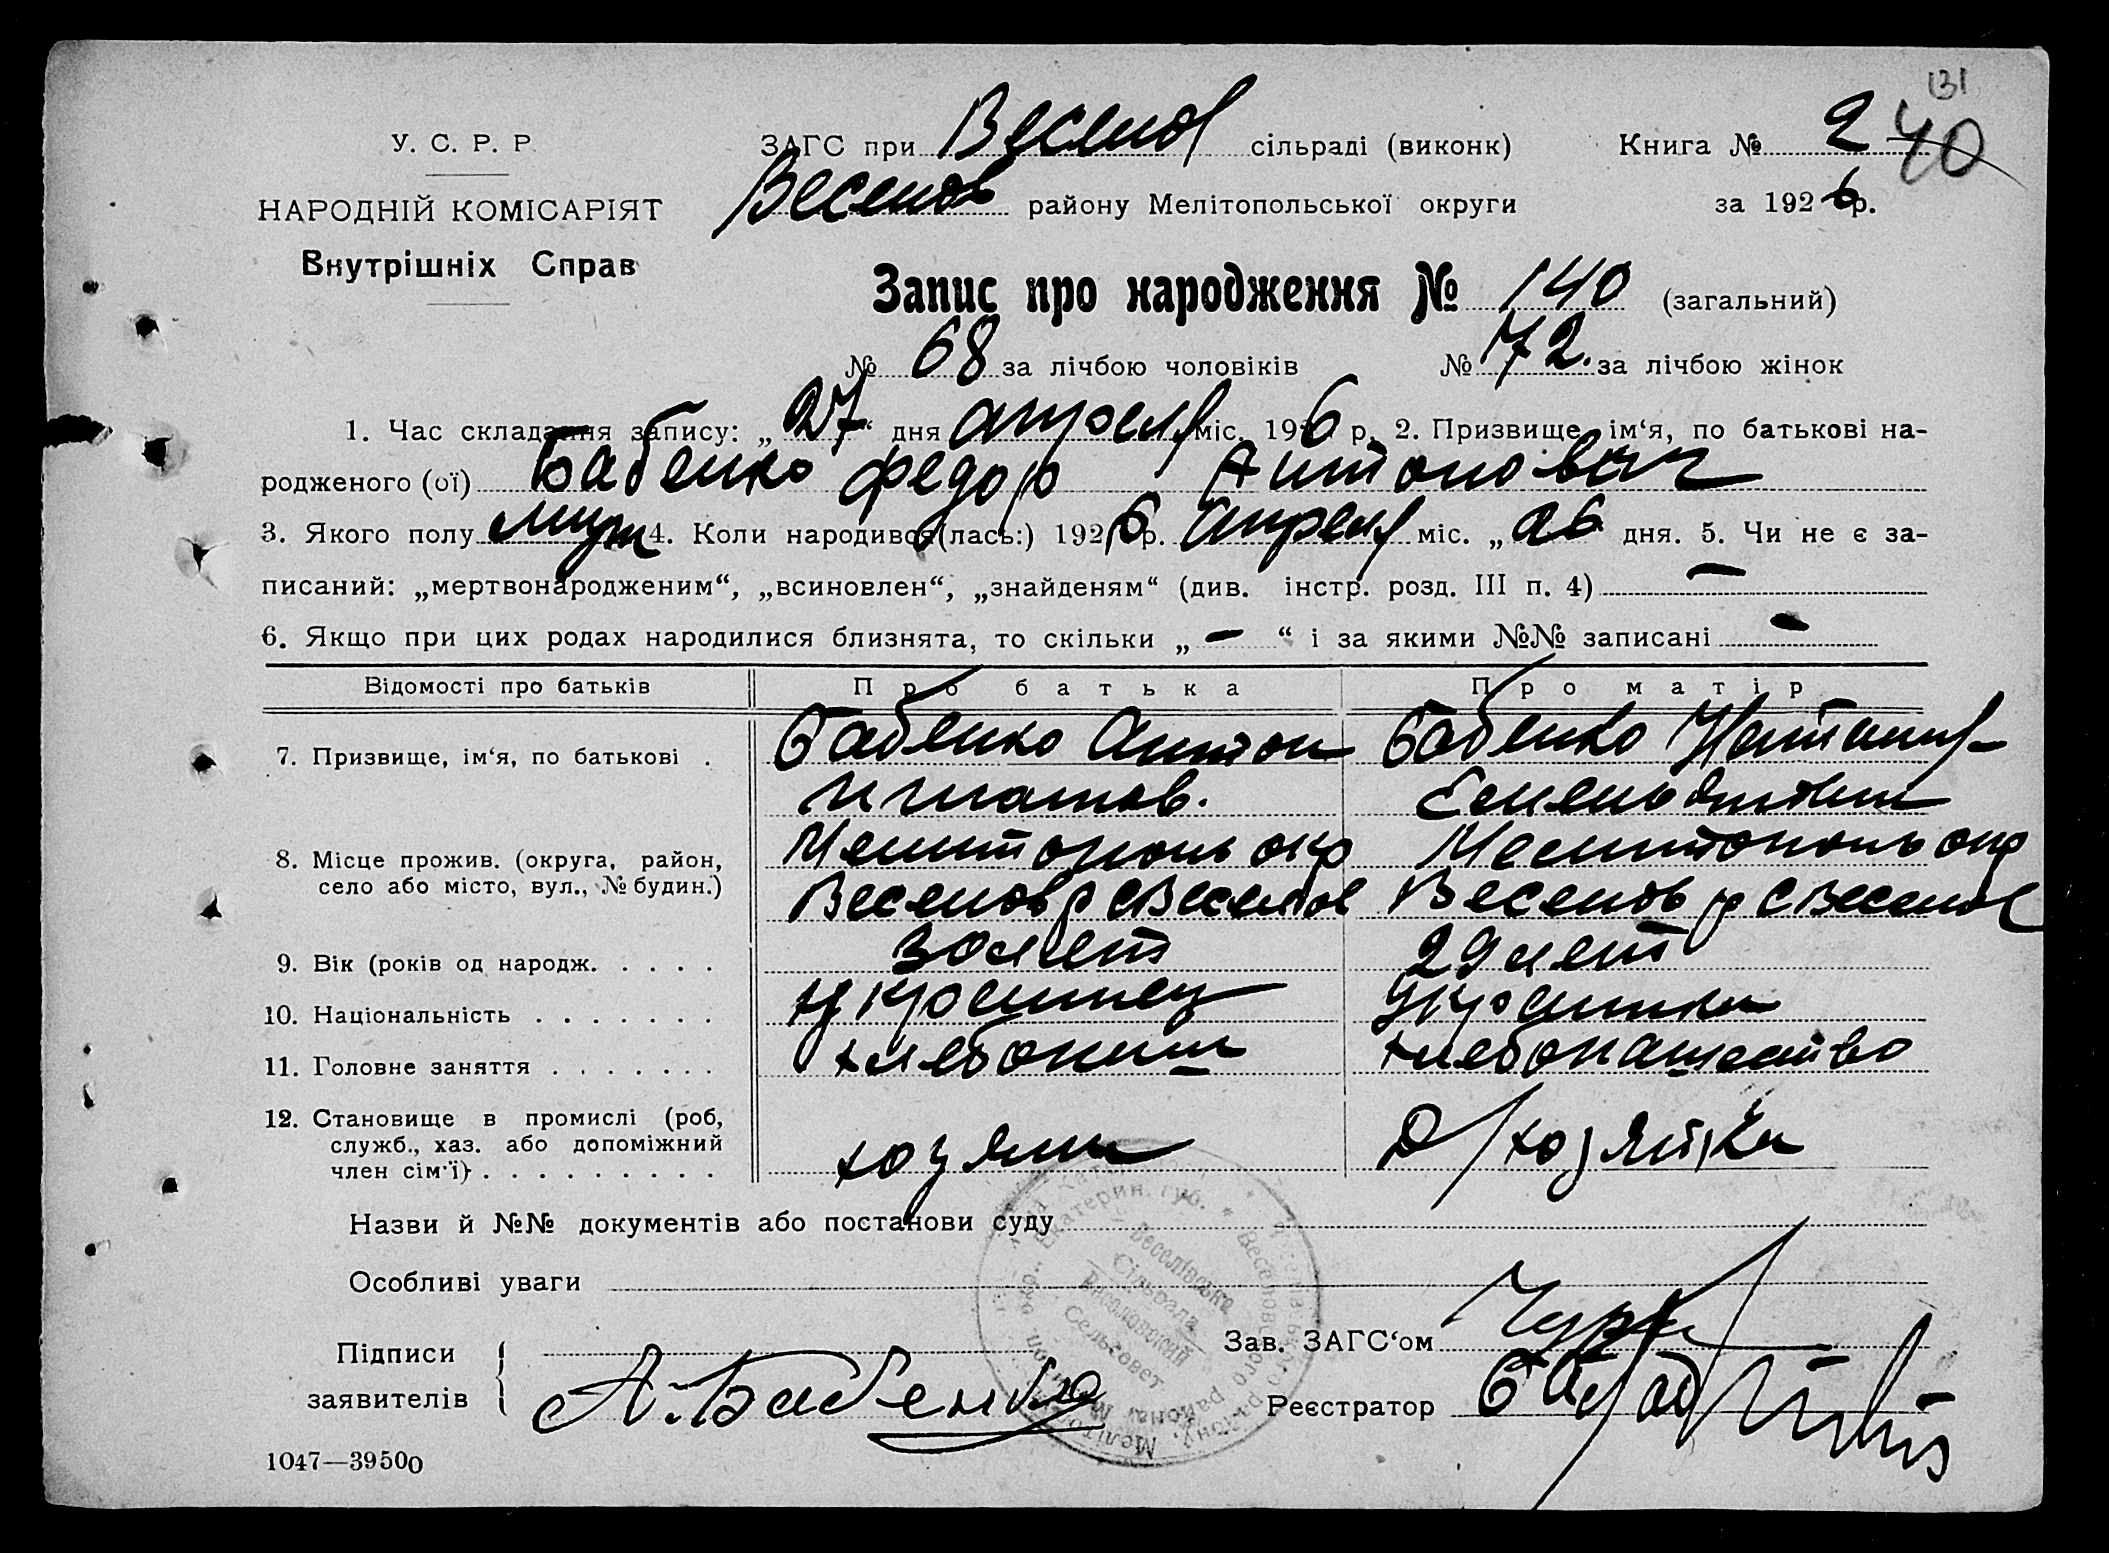 131
У. С. Р. Р.
ЗАГС при Веселов сільраді (виконк)
Книга № 2 40
НАРОДНІЙ КОМІСАРІЯТ
Веселов району Мелітопольської округи
за 1926 р.
Внутрішніх Справ
Запис про народження № 140 (загальний)
№ 68 за лічбою чоловіків № 72. за лічбою жінок
1. Час складання запису: „27“ дня апреля міс. 1926 р. 2. Призвище, ім‘я, по батькові на-
родженого (ої) Бабенко Федор Антонович
3. Якого полу муж 4. Коли народився(лась:) 1926 р. Апреля міс. „26 дня. 5. Чи не є за-
писаний: „мертвонародженим“, „всиновлен“, „знайденям“ (див. інстр. розд. III п. 4) —
6. Якщо при цих родах народилися близнята, то скільки „ — “ і за якими №№ записані —
Відомості про батьків Про батька Про матір
7. Призвище, ім‘я, по батькові . Бабенко Антон Бабенко Наталия
Игнатов.
8. Місце прожив. (округа, район, Мелитополь окр Мелитополь окр
село або місто, вул., № будин.) Веселов р с Веселое Веселов р с Веселое
9. Вік (років од народж. . . . . 30 лет 29 лет
10. Національність . . . . . . . Украинец Украинка
11. Головне заняття . . . . . . . хлебопаш хлебопашество
12. Становище в промислі (роб,
служб., хаз. або допоміжний
член сім‘ї) . . . . . . . . . хозяин Д/хозяйка
Назви й №№ документів або постанови суду
Особливі уваги
Підписи
заявителів
А. Бабенко
Зав. ЗАГС‘ом
Реєстратор
Веселівська
Сільрада
Веселовский
Сельсовет
1047—39500